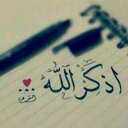 اذكر الله